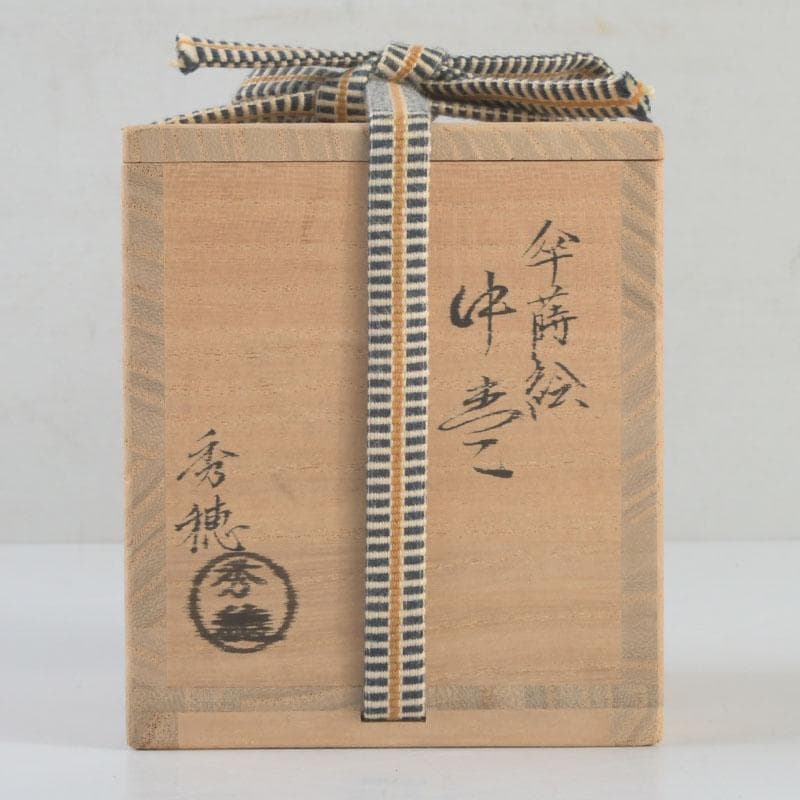 傘蒔絵
中棗
秀穂
秀